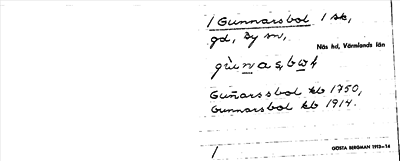 1 Gunnarsbol 1 sk,
gd, By sn,
Näs hd, Värmlands län
Gunarssbol kb 1750,
Gunnarsbol kb 1914.
1
GÖSTA BERGMAN 1913—14